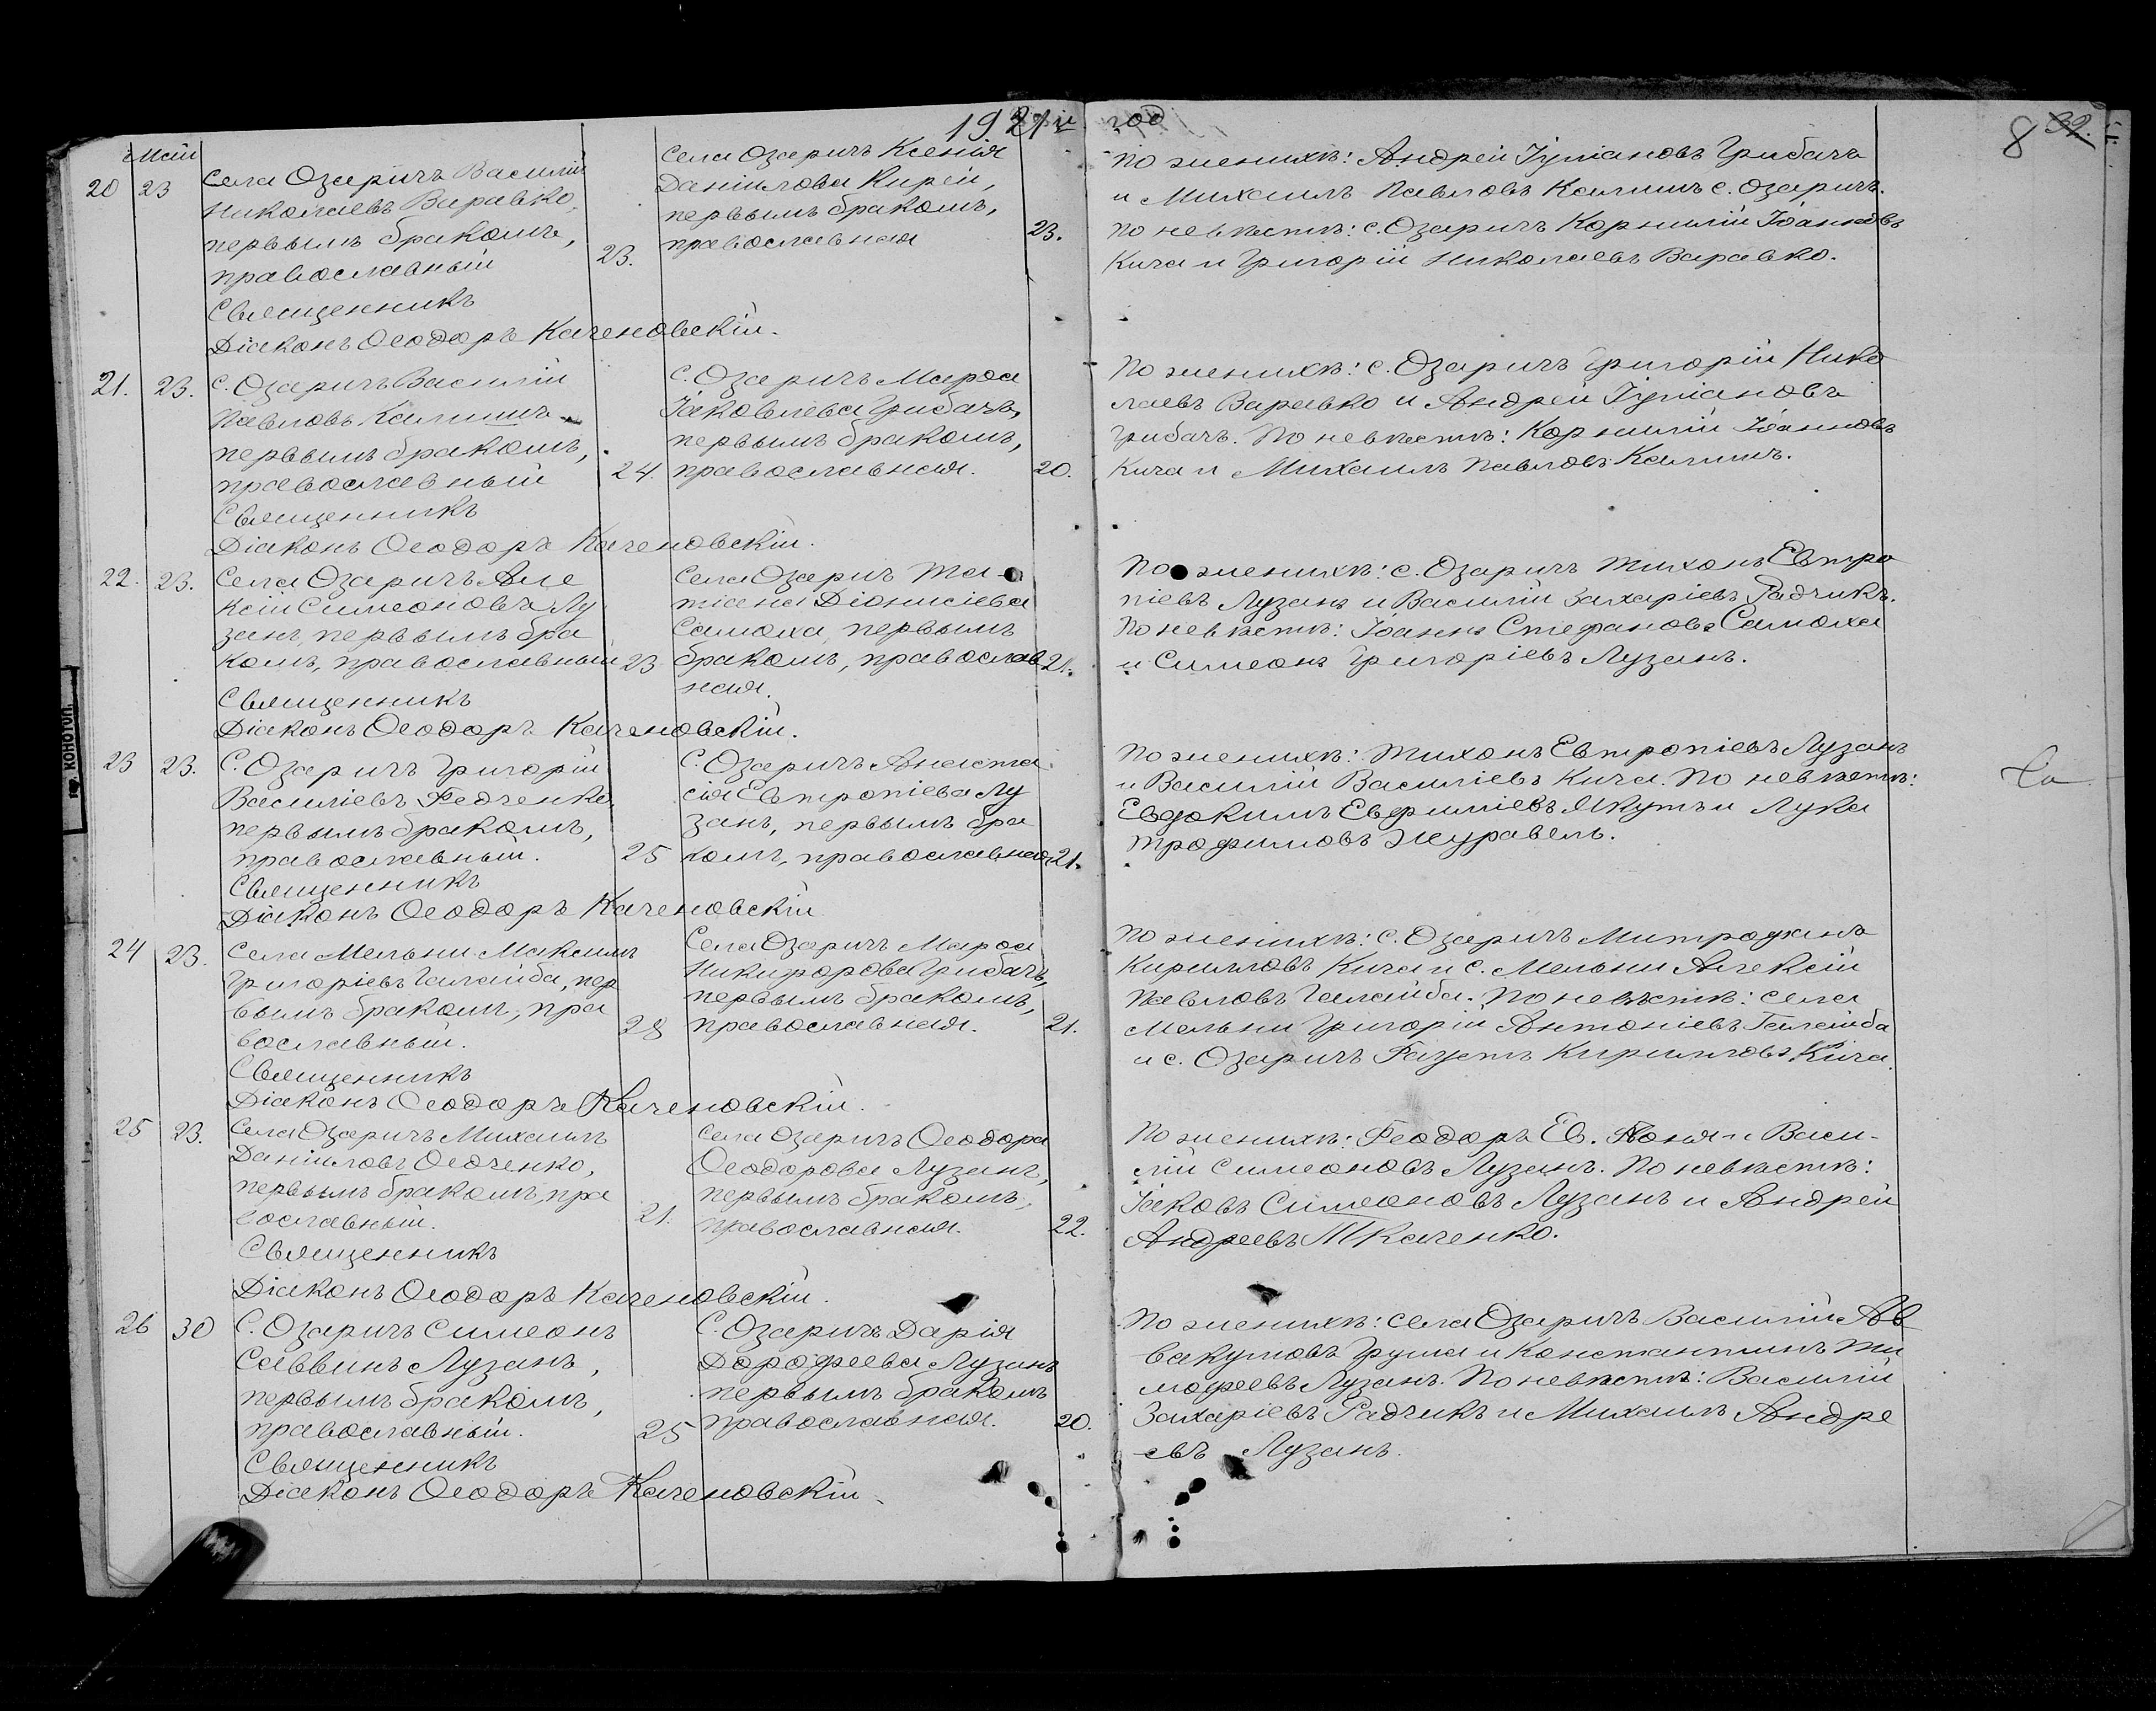 1921й год
8 32.
Май
20 23
Села Озаричъ Василій
Николаевъ Варавко,
первымъ бракомъ,
православный
23.
Священникъ
Діаконъ Ѳеодоръ Каченовскій.
Села Озаричъ Ксенія
Даніилова Кирей,
первымъ бракомъ,
православная
23.
По женихѣ: Андрей Іуліановъ Грибачъ
и Михаилъ Павловъ Калишъ с. Озаричъ.
По невѣстѣ: с. Озаричъ Корнилій Іоанновъ
Кича и Григорій Николаевъ Варавко.
21. 23.
С. Озаричъ Василій
Павловъ Калишъ
первымъ бракомъ,
православный
24.
Священникъ
Діаконъ Ѳеодоръ Каченовскій.
С. Озаричъ Марѳа
Іаковлева Грибачъ,
первымъ бракомъ,
православная.
20.
По женихѣ: с. Озаричъ Григорій Нико
лаевъ Варавко и Андрей Іуліановъ
Грибачъ. По невѣстѣ: Корнилій Іоанновъ
Кича и Михаилъ Павловъ Калишъ.
22. 23.
Села Озаричъ Але
ксій Симеоновъ Лу
занъ, первымъ бра
комъ, православный
23
Священникъ
Діаконъ Ѳеодоръ Каченовскій.
Села Озаричъ Та
тіана Діонисіева
Самоха, первымъ
бракомъ, православ
ная.
21.
По женихѣ: с. Озаричъ Тихонъ Евтро
піевъ Лузанъ и Василій Захаріевъ Радчикъ.
По невѣстѣ: Іоаннъ Стефановъ Самоха
и Симеонъ Григоріевъ Лузанъ.
23 23.
С. Озаричъ Григорій
Василіевъ Федченко
первымъ бракомъ,
православный.
25
Священникъ
Діаконъ Ѳеодоръ Каченовскій
С. Озаричъ Анаста
сія Евтропіева Лу
занъ, первымъ бра
комъ, православная
21.
По женихѣ: Тихонъ Евтропіевъ Лузанъ
и Василій Василіевъ Кича. По невѣстѣ:
Евдокимъ Евфиміевъ Якутъ и Лука
Трофимовъ Журавель.
24 23.
Села Мельни Максимъ
Григоріевъ Галайба, пер
вымъ бракомъ, пра
вославный.
28
Священникъ
Діаконъ Ѳеодоръ Каченовскій.
Села Озаричъ Марѳа
Никифорова Грибачъ,
первымъ бракомъ,
православная.
21.
По женихѣ: с. Озаричъ Митрофанъ
Кирилловъ Кича и с. Мельни Алексій
Павловъ Галайба. По невѣстѣ: села
Мельни Григорій Антоніевъ Галайба
и с. Озаричъ Кирилловъ Кича.
25 23.
Села Озаричъ Михаилъ
Даніиловъ Ѳедченко,
первымъ бракомъ, пра
вославный.
21.
Священникъ
Діаконъ Ѳеодоръ Каченовскій.
Села Озаричъ Ѳеодора
Ѳеодорова Лузанъ,
первымъ бракомъ,
православная.
22.
По женихѣ: Феодоръ Ев. Коня и Васи-
лій Симеоновъ Лузанъ. По невѣстѣ:
Іаковъ Симеоновъ Лузанъ и Андрей
Андреевъ Ткаченко.
26 30
С. Озаричъ Симеонъ
Саввинъ Лузанъ,
первымъ бракомъ,
православный.
25
Священникъ
Діаконъ Ѳеодоръ Каченовскій.
С. Озаричъ Дарія
Дорофеева Лузанъ
первымъ бракомъ
православная.
20.
По женихѣ: села Озаричъ Василій Ав
вакумовъ Груша и Константинъ Ти
мофеевъ Лузанъ. По невѣстѣ: Василій
Захаріевъ Радчикъ и Михаилъ Андре
евъ Лузанъ.
гор. КОНОТОП.